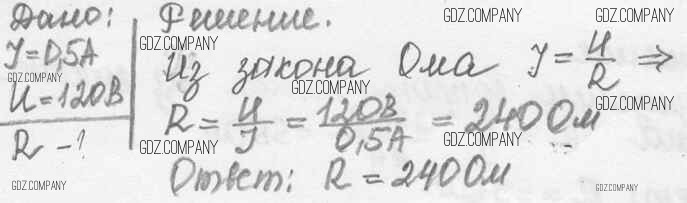 Дано: Решение.
J=0,5А
U=120В
R-?
Из закона Ома J = U/R ⇒
R = U/J = 120В/0,5А = 240 Ом
Ответ: R = 240 Ом
GDZ.COMPANY
GDZ.COMPANY
GDZ.COMPANY
GDZ.COMPANY
GDZ.COMPANY
GDZ.COMPANY
GDZ.COMPANY
GDZ.COMPANY
GDZ.COMPANY
GDZ.COMPANY
GDZ.COMPANY
GDZ.COMPANY
GDZ.COMPANY
GDZ.COMPANY